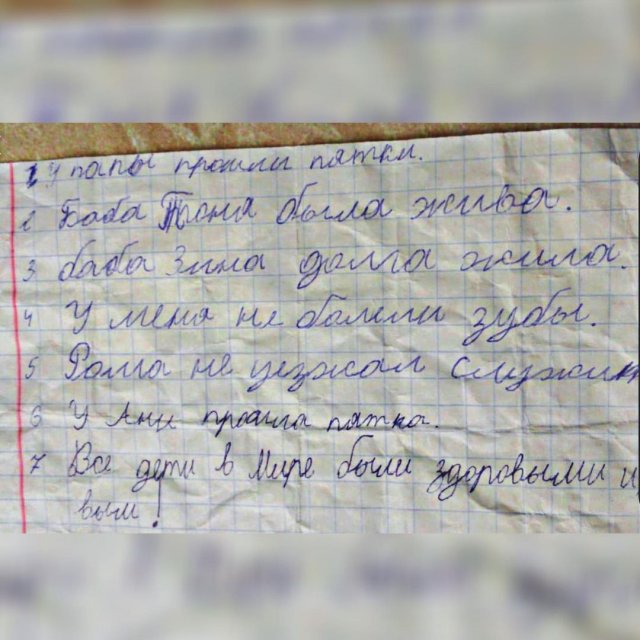 1 У папы прошли пятки.
2 Баба Тоня была жива.
3 баба Зина долга жила.
4 У меня не болели зубы.
5 Рома не уезжал служит
6 У Ани прошла пятка.
7 Все дети в Мире были здоровыми и
вым!